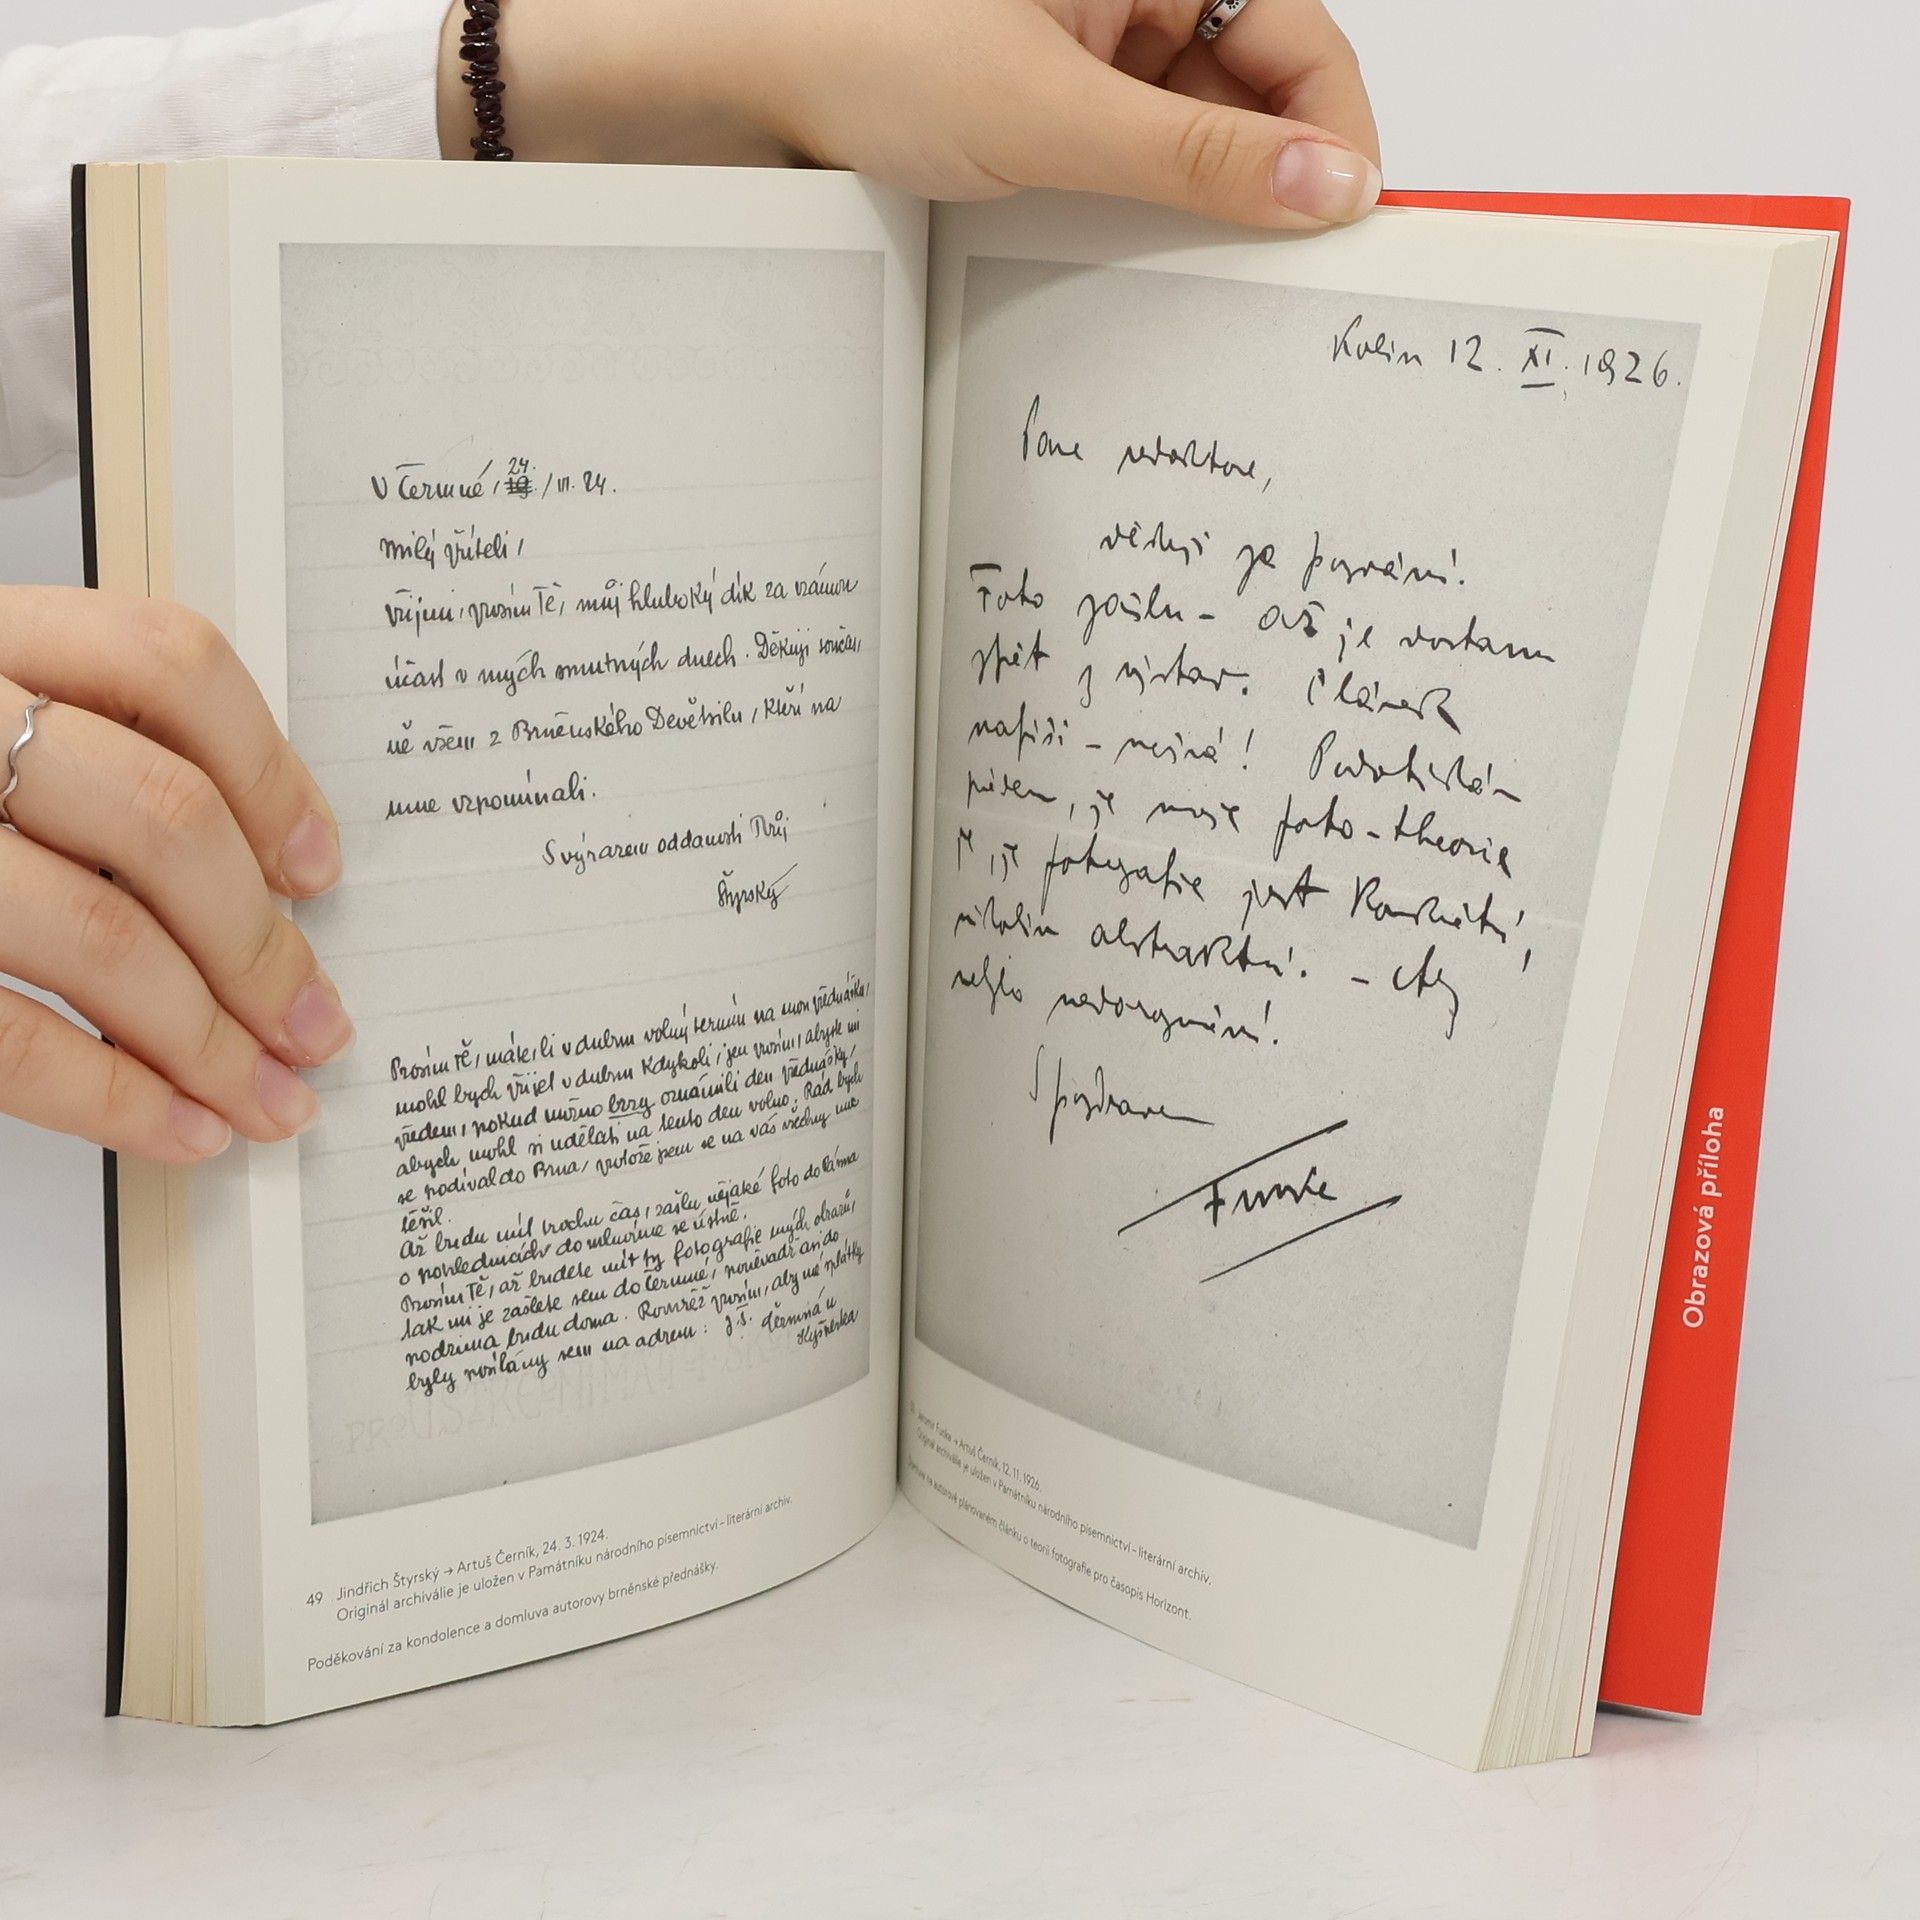 V Čermné, 24./III. 24.
Milý příteli,
Přijmi, prosím Tě, můj hluboký dík za vzácnou
účast v mých smutných dnech. Děkuji součas,
ně všem z Brněnského Devětsilu, kteří na
mne vzpomínali.
S výrazem oddanosti Tvůj
Štyrský
Prosím Tě, máte,li v dubnu volný termín na mou přednášku,
mohl bych přijet v dubnu kdykoli, jen prosím, abyste mi
předem, pokud možno brzy oznámili den přednášky,
abych mohl si udělati na tento den volno. Rád bych
se podíval do Brna, protože jsem se na vás všechny moc
těšil.
Až budu mít trochu čas, zašlu nějaké foto do Pásma
o pohlednicích domluvíme se ústně.
Prosím Tě, až budete mít ty fotografie mých obrazů,
tak mi je zašlete sem do Čermné, poněvadž asi do
podzima budu doma. Rovněž prosím, aby mé splátky
byly posílány sem na adresu: J.Š. Čermná u
Kyšperka
49 Jindřich Štyrský → Artuš Černík, 24. 3. 1924.
Originál archiválie je uložen v Památníku národního písemnictví – literární archiv.
Poděkování za kondolence a domluva autorovy brněnské přednášky.
Kolín 12. XI. 1926.
Pane redaktore,
děkuji za pozvání.
Foto zašlu – až je dostanu
zpět z výstav. Článek
napíši – nejsa! Podotýkám
předem, že moje foto-theorie
je, že fotografie jest konkrétní,
nikoliv abstraktní. – Aby
nebylo nedorozumění!
S pozdravem
Funke
Jaromír Funke → Artuš Černík, 12. 11. 1926.
Originál archiválie je uložen v Památníku národního písemnictví – literární archiv.
Domluva na autorově plánovaném článku o teorii fotografie pro časopis Horizont.
Obrazová příloha